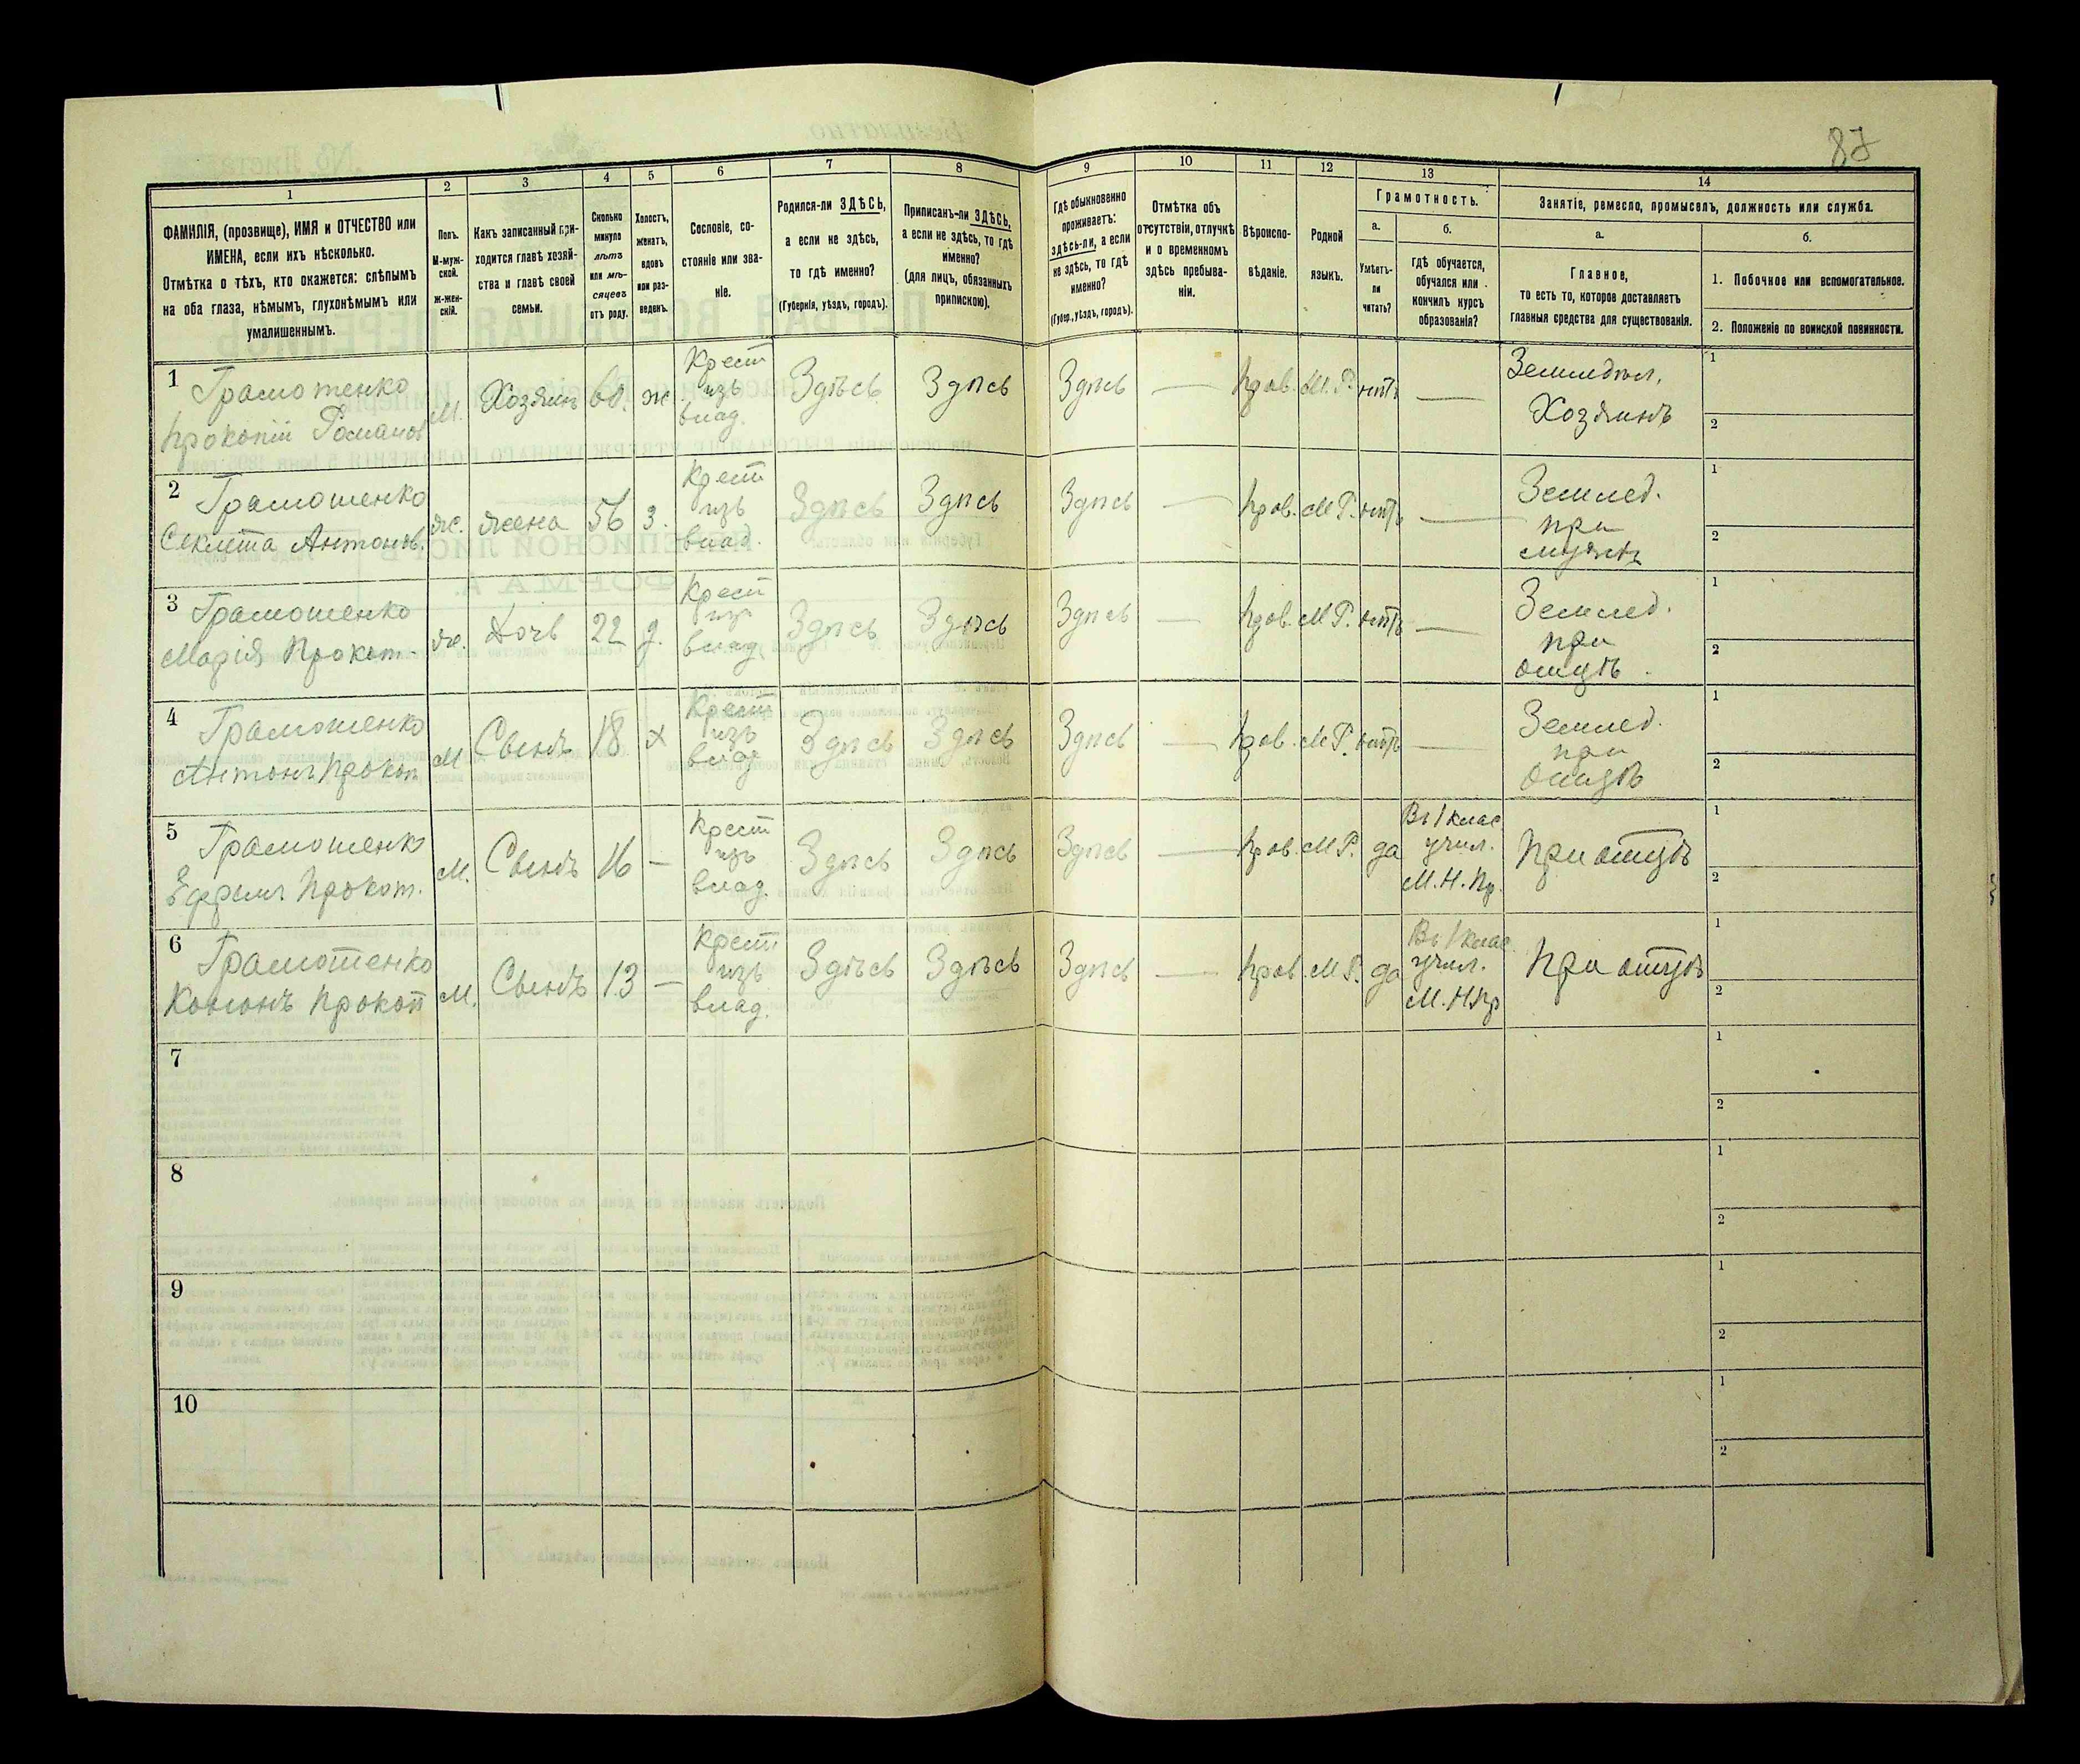 87
1
2
3
4
5
6
7
8
9
10
11
12
13
14
ФАМИЛІЯ, (прозвище), ИМЯ и ОТЧЕСТВО или
ИМЕНА, если ихъ нѣсколько.
Отмѣтка о тѣхъ, кто окажется: слѣпымъ
на оба глаза, нѣмымъ, глухонѣмымъ или
умалишеннымъ.
Полъ.
М-муж-
ской.
Ж-жен-
скій.
Какъ записанный при-
ходится главѣ хозяй-
ства и главѣ своей
семьи.
Сколько
минуло
лѣтъ
или мѣ-
сяцевъ
отъ роду.
Холостъ,
женатъ,
вдовъ
или раз-
веденъ.
Сословіе, со-
стояніе или зва-
ніе.
Родился-ли ЗДѢСЬ,
а если не здѣсь,
то гдѣ именно?
(Губернія, уѣздъ, городъ).
Приписанъ-ли ЗДѢСЬ,
а если не здѣсь, то гдѣ
именно?
(для лицъ, обязанныхъ
припискою).
Гдѣ обыкновенно
проживаетъ:
здѣсь-ли, а если
не здѣсь, то гдѣ
именно?
(Губер., уѣздъ, городъ).
Отмѣтка объ
отсутствіи, отлучкѣ
и о временномъ
здѣсь пребыва-
ніи.
Вѣроиспо-
вѣданіе.
Родной
языкъ.
Грамотность.
а.
Умѣетъ-
ли
читать?
б.
гдѣ обучается,
обучался или
кончилъ курсъ
образованія?
Занятіе, ремесло, промыселъ, должность или служба.
а.
Главное,
то есть то, которое доставляетъ
главныя средства для существованія.
б.
1. Побочное или вспомогательное.
2. Положеніе по воинской повинности.
1 Грамотенко
Прокопій Романов
М.
Хозяинъ
60.
ж
Крест
изъ
влад.
Здѣсь
Здѣсь
Здѣсь
—
Прав.
М.Р.
нѣтъ
—
Земледѣл.
Хозяинъ
1
2
2 Грамотенко
Секлета Антонов.
ж.
жена
56
з.
Крест
изъ
влад.
Здѣсь
Здѣсь
Здѣсь
—
Прав.
М.Р.
нѣтъ
—
Землед.
при
мужѣ
1
2
3 Грамотенко
Марія Прокоп.
ж.
Дочь
22
д.
Крест
изъ
влад.
Здѣсь
Здѣсь
Здѣсь
—
Прав.
М.Р.
нѣтъ
—
Землед.
при
отцѣ
1
2
4 Грамотенко
Антонъ Прокоп
М
Сынъ
18
х
Крест
изъ
влад
Здѣсь
Здѣсь
Здѣсь
—
Прав.
М.Р.
нѣтъ
—
Землед.
при
отцѣ
1
2
5 Грамотенко
Ефремъ Прокоп.
М.
Сынъ
16
—
Крест
изъ
влад.
Здѣсь
Здѣсь
Здѣсь
—
Прав.
М.Р.
да
Въ 1 клас
учил.
М.Н.Пр.
При отцѣ
1
2
6 Грамотенко
Кононъ Прокоп
М.
Сынъ
13
—
Крест
изъ
влад.
Здѣсь
Здѣсь
Здѣсь
—
Прав.
М.Р.
да
Въ 1 клас
учил.
М.Н.Пр
При отцѣ
1
2
7
1
2
8
1
2
9
1
2
10
1
2